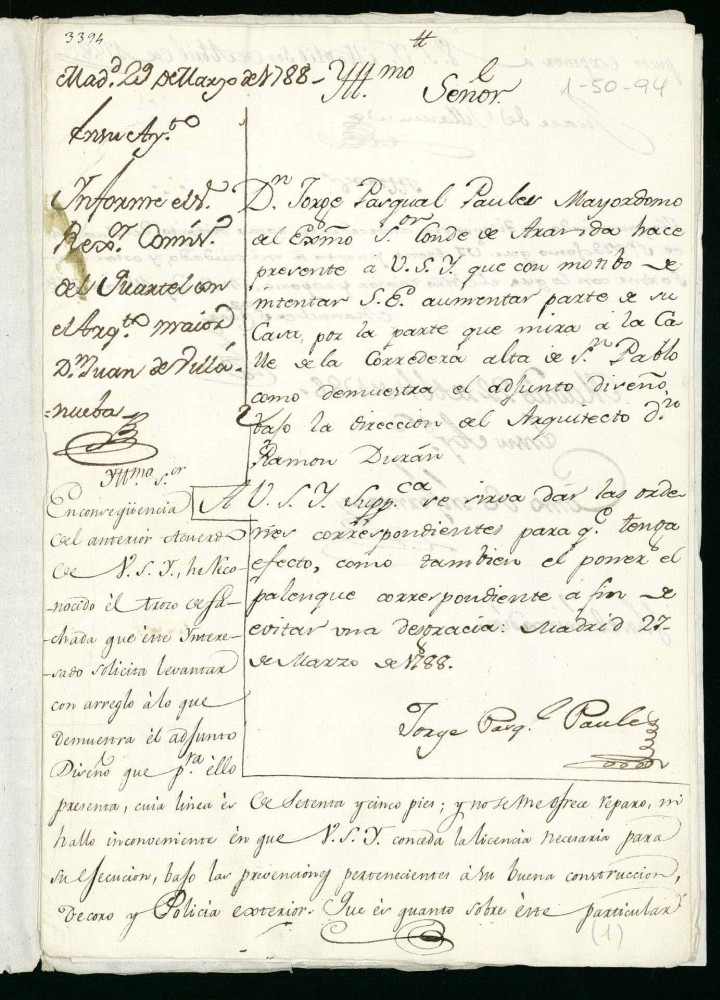 3394
#
Mad.d 29 de Marzo de 1788 -
Yll.mo
Señor.
1-50-94
En su Ay.to
Informe el S.r
Rex.or Comis.o
del Quartel con
el Arq.to maior
D.n Juan de Villa-
-nueba
D.n Jorge Pasqual Paules Mayordomo
del Exmo S.or Conde de Aranda hace
presente á V.S.Y. que con motibo de
intentar S.E. aumentar parte de su
Casa, por la parte que mira á la Ca-
lle de la Corredera alta de S.n Pablo
como demuestra el adjunto diseño,
bajo la direccion del Arquitecto d.n
Ramon Durán
A V.S.Y. Supp.ca se sirva dár las orde-
nes correspondientes para q.e tenga
efecto, como tambien el poner el
palenque correspondiente á fin de
evitar una desgracia. Madrid 27
de Marzo de 1788.
Jorge Pasq.l Paules
Yll.mo S.or
En conseqüencia
del anterior Acuerdo
de V.S.Y., he Reco-
-nocido él trozo de fa-
-chada que éste Intere-
-sado solicita levantar
con arreglo á lo que
demuestra él adjunto
Diseño que p.ra éllo
presenta, cuia linea és de setenta y cinco pies; y no se me ofrece reparo, ni
hallo inconveniente én que V.S.Y. conceda la licencia necesaria para
su efecucion, bajo las prevenciones pertenecientes á su buena construccion,
Decoro y Policía exterior. Que és quanto sobre éste particular
(1)